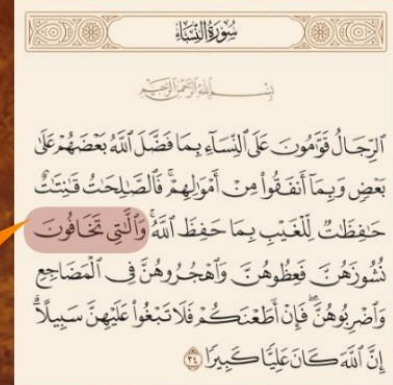 سُورَةُ النِّسَاءِ
بِسْمِ اللَّهِ الرَّحْمَٰنِ الرَّحِيمِ
ٱلرِّجَالُ قَوَّٰمُونَ عَلَى ٱلنِّسَآءِ بِمَا فَضَّلَ ٱللَّهُ بَعْضَهُمْ عَلَىٰ
بَعْضٍ وَبِمَآ أَنفَقُواْ مِنْ أَمْوَٰلِهِمْۚ فَٱلصَّٰلِحَٰتُ قَٰنِتَٰتٌ
حَٰفِظَٰتٌ لِّلْغَيْبِ بِمَا حَفِظَ ٱللَّهُۚ وَٱلَّٰتِي تَخَافُونَ
نُشُوزَهُنَّ فَعِظُوهُنَّ وَٱهْجُرُوهُنَّ فِي ٱلْمَضَاجِعِ
وَٱضْرِبُوهُنَّۖ فَإِنْ أَطَعْنَكُمْ فَلَا تَبْغُواْ عَلَيْهِنَّ سَبِيلًاۗ
إِنَّ ٱللَّهَ كَانَ عَلِيًّا كَبِيرًا ٣٤